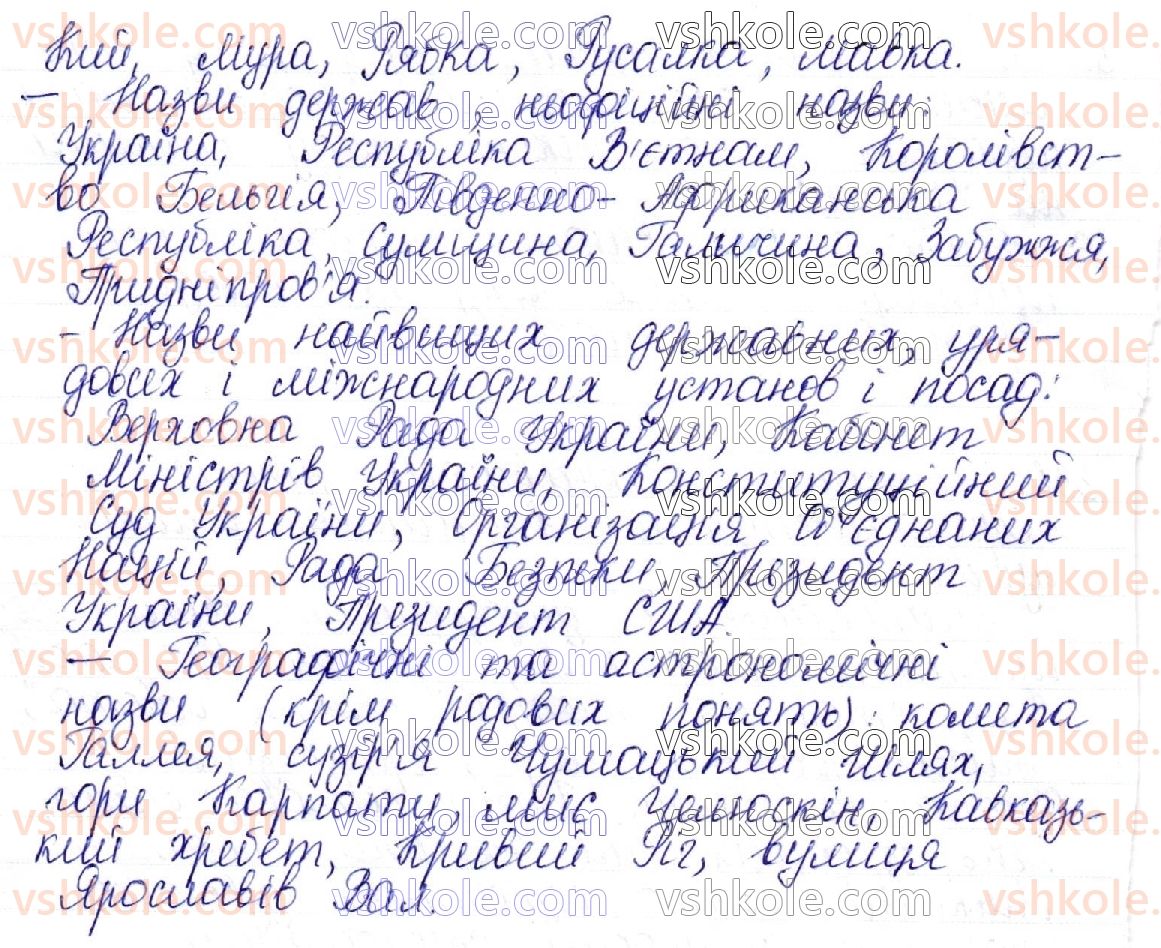 Кий, Мура, Рябка, Русалка, Мавка.
— Назви держав, неофіційні назви:
Україна, Республіка В'єтнам, Королівст-
во Бельгія, Південно-Африканська
Республіка, Сумщина, Галичина, Забужжя,
Придніпров'я.
— Назви найвищих державних, уря-
дових і міжнародних установ і посад:
Верховна Рада України, Кабінет
Міністрів України, Конституційний
Суд України, Організація Об'єднаних
Націй, Рада Безпеки, Президент
України, Президент США.
— Географічні та астрономічні
назви (крім родових понять): комета
Галлея, сузір'я Чумацький Шлях,
гори Карпати, мис Челюскін, Кавказь-
кий хребет, Кривий Ріг, вулиця
Ярославів Вал.